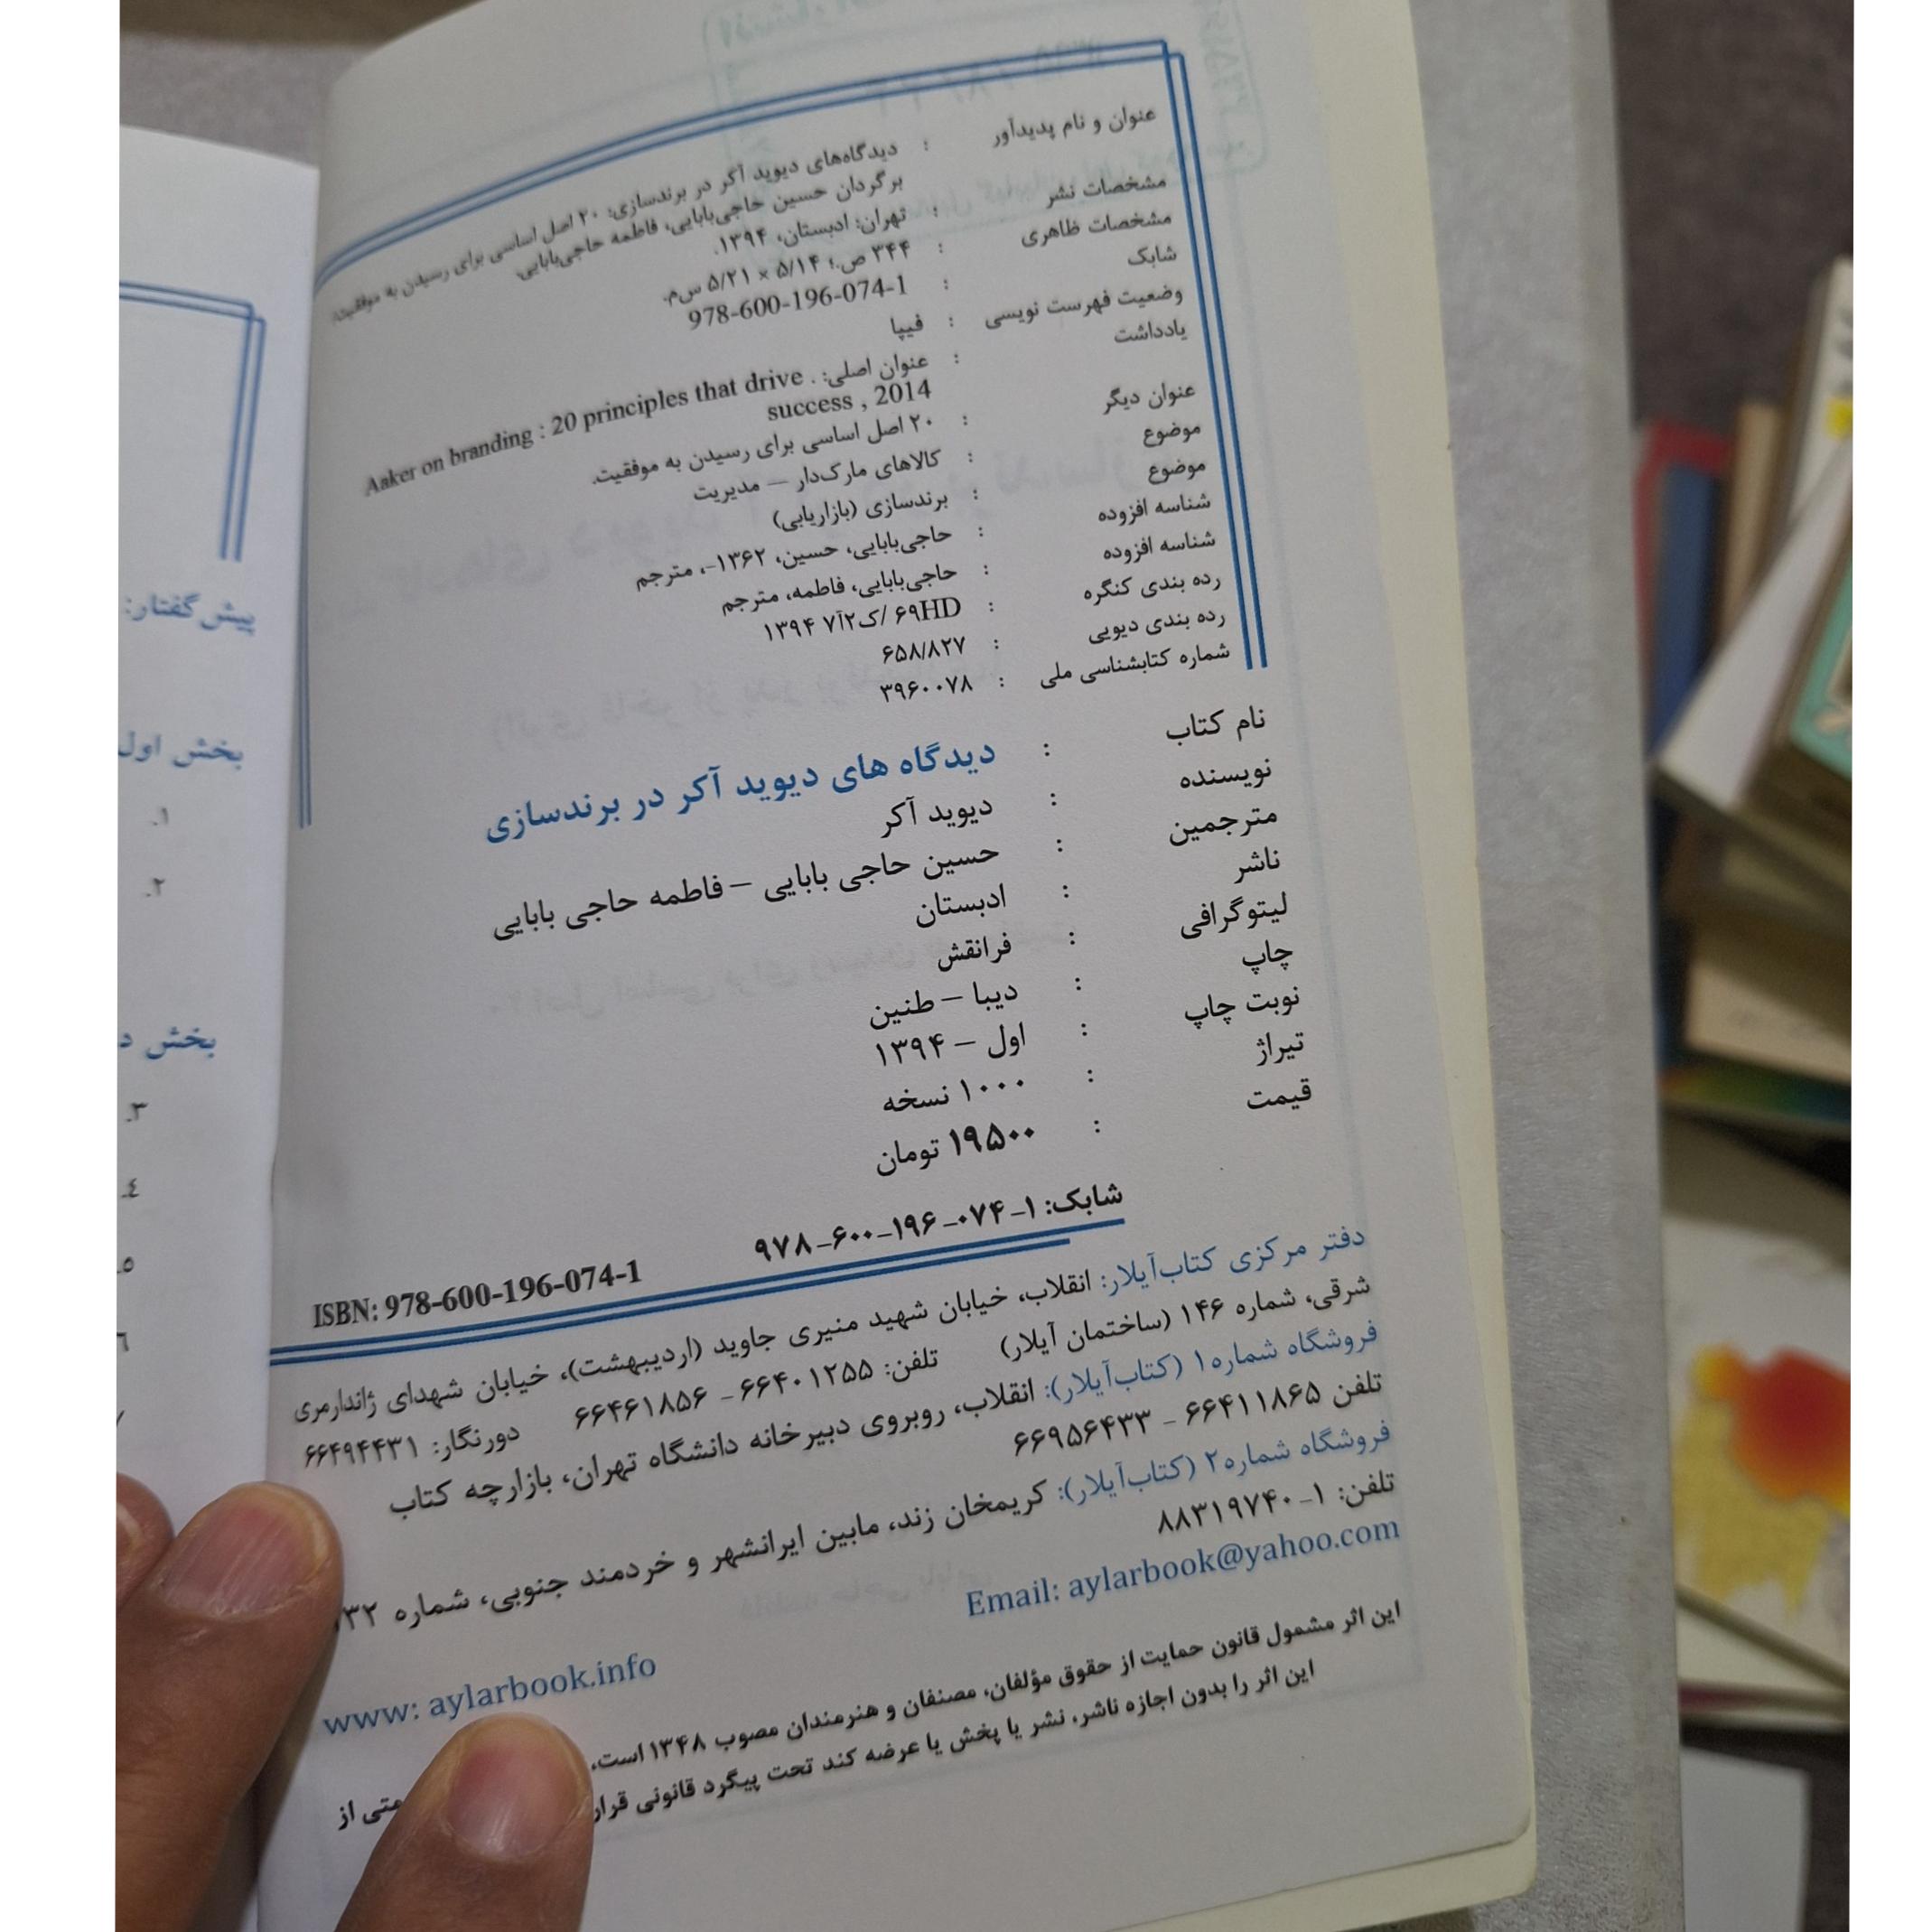 عنوان و نام پدیدآور : دیدگاه‌های دیوید آکر در برندسازی: ۲۰ اصل اساسی برای رسیدن به موفقیت/
برگردان حسین حاجی‌بابایی، فاطمه حاجی‌بابایی.
مشخصات نشر : تهران: ادبستان، ۱۳۹۴.
مشخصات ظاهری : ۳۴۴ ص.؛ ۵/۱۴ × ۵/۲۱ س‌م.
شابک : 978-600-196-074-1
وضعیت فهرست نویسی : فیپا
یادداشت : عنوان اصلی: . Aaker on branding : 20 principles that drive
success , 2014
عنوان دیگر : ۲۰ اصل اساسی برای رسیدن به موفقیت.
موضوع : کالاهای مارک‌دار — مدیریت
موضوع : برندسازی (بازاریابی)
شناسه افزوده : حاجی‌بابایی، حسین، ۱۳۶۲-، مترجم
شناسه افزوده : حاجی‌بابایی، فاطمه، مترجم
رده بندی کنگره : ۶۹HD /ک۲آ۷ ۱۳۹۴
رده بندی دیویی : ۶۵۸/۸۲۷
شماره کتابشناسی ملی : ۳۹۶۰۰۷۸
نام کتاب : دیدگاه های دیوید آکر در برندسازی
نویسنده : دیوید آکر
مترجمین : حسین حاجی بابایی – فاطمه حاجی بابایی
ناشر : ادبستان
لیتوگرافی : فرانقش
چاپ : دیبا – طنین
نوبت چاپ : اول – ۱۳۹۴
تیراژ : ۱۰۰۰ نسخه
قیمت : ۱۹۵۰۰ تومان
شابک: ۱-۰۷۴-۱۹۶-۶۰۰-۹۷۸ ISBN: 978-600-196-074-1
دفتر مرکزی کتاب‌آیلار: انقلاب، خیابان شهید منیری جاوید (اردیبهشت)، خیابان شهدای ژاندارمری
شرقی، شماره ۱۴۶ (ساختمان آیلار) تلفن: ۶۶۴۰۱۲۵۵ - ۶۶۴۶۱۸۵۶ دورنگار: ۶۶۴۹۴۴۳۱
فروشگاه شماره۱ (کتاب‌آیلار): انقلاب، روبروی دبیرخانه دانشگاه تهران، بازارچه کتاب
تلفن ۶۶۴۱۱۸۶۵ - ۶۶۹۵۶۴۳۳
فروشگاه شماره۲ (کتاب‌آیلار): کریمخان زند، مابین ایرانشهر و خردمند جنوبی، شماره
تلفن: ۱-۸۸۳۱۹۷۴۰
Email: aylarbook@yahoo.com
www: aylarbook.info
این اثر مشمول قانون حمایت از حقوق مؤلفان، مصنفان و هنرمندان مصوب ۱۳۴۸ است. متی از
این اثر را بدون اجازه ناشر، نشر یا پخش یا عرضه کند تحت پیگرد قانونی قرار
پیش‌گفتار:
بخش اول
۱.
۲.
بخش د
۳.
٤.
٥.
٦